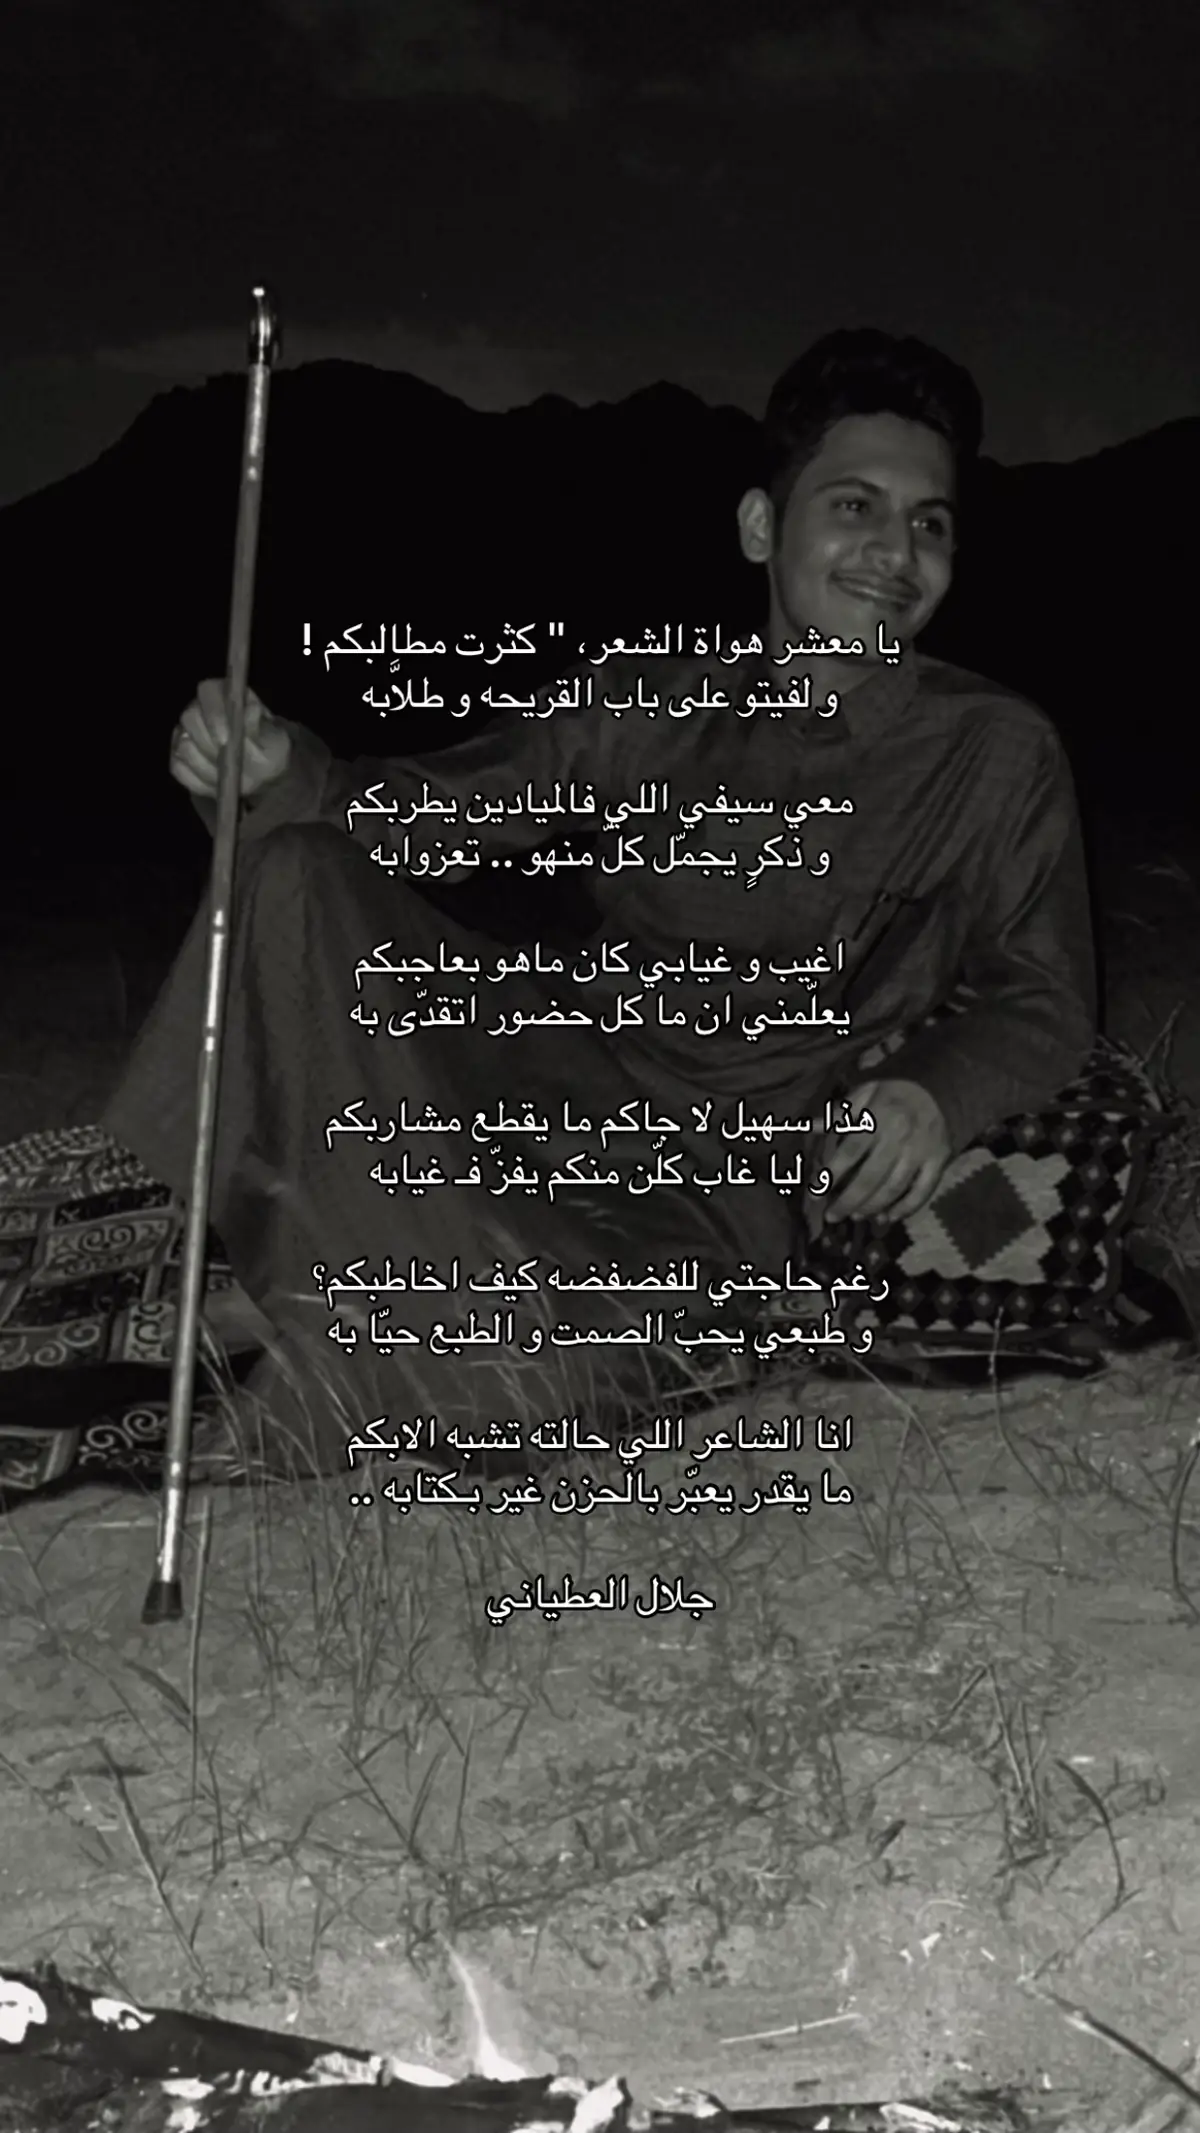 يا معشر هواة الشعر، " كثرت مطالبكم !
و لفيتو على باب القريحه و طلاَّبه
معي سيفي اللي فالميادين يطربكم
و ذكرٍ يجمّل كلّ منهو .. تعزوابه
اغيب و غيابي كان ماهو بعاجبكم
يعلّمني ان ما كل حضور اتقدّى به
هذا سهيل لا جاكم ما يقطع مشاربكم
و ليا غاب كلّن منكم يفزّ فـ غيابه
رغم حاجتي للفضفضه كيف اخاطبكم؟
و طبعي يحبّ الصمت و الطبع حيّا به
انا الشاعر اللي حالته تشبه الابكم
ما يقدر يعبّر بالحزن غير بكتابه ..
جلال العطياني